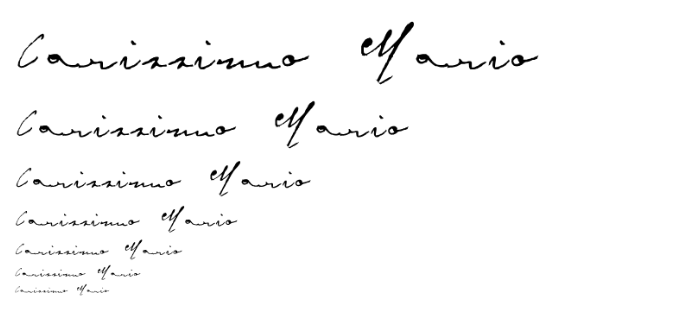 Carissimo Mario
Carissimo Mario
Carissimo Mario
Carissimo Mario
Carissimo Mario
Carissimo Mario
Carissimo Mario